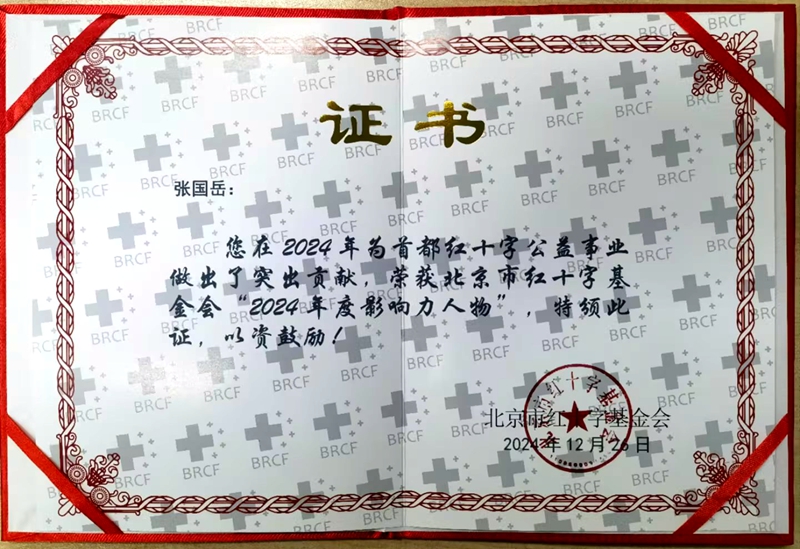 证书
张国岳：
您在2024年为首都红十字公益事业
做出了突出贡献，荣获北京市红十字基
金会“2024年度影响力人物”，特颁此
证，以资鼓励！
北京市红十字基金会
2024年12月26日
BRCF